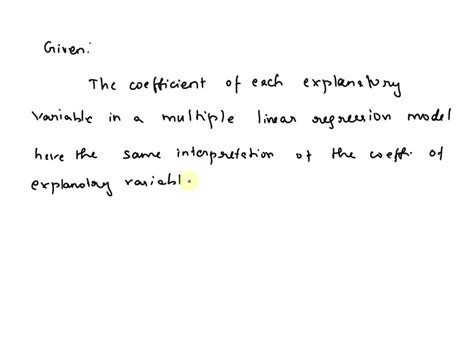 Given:
The coefficient of each explanatory
variable in a multiple linear regression model
have the same interpretation of the coeff. of
explanatory variabl